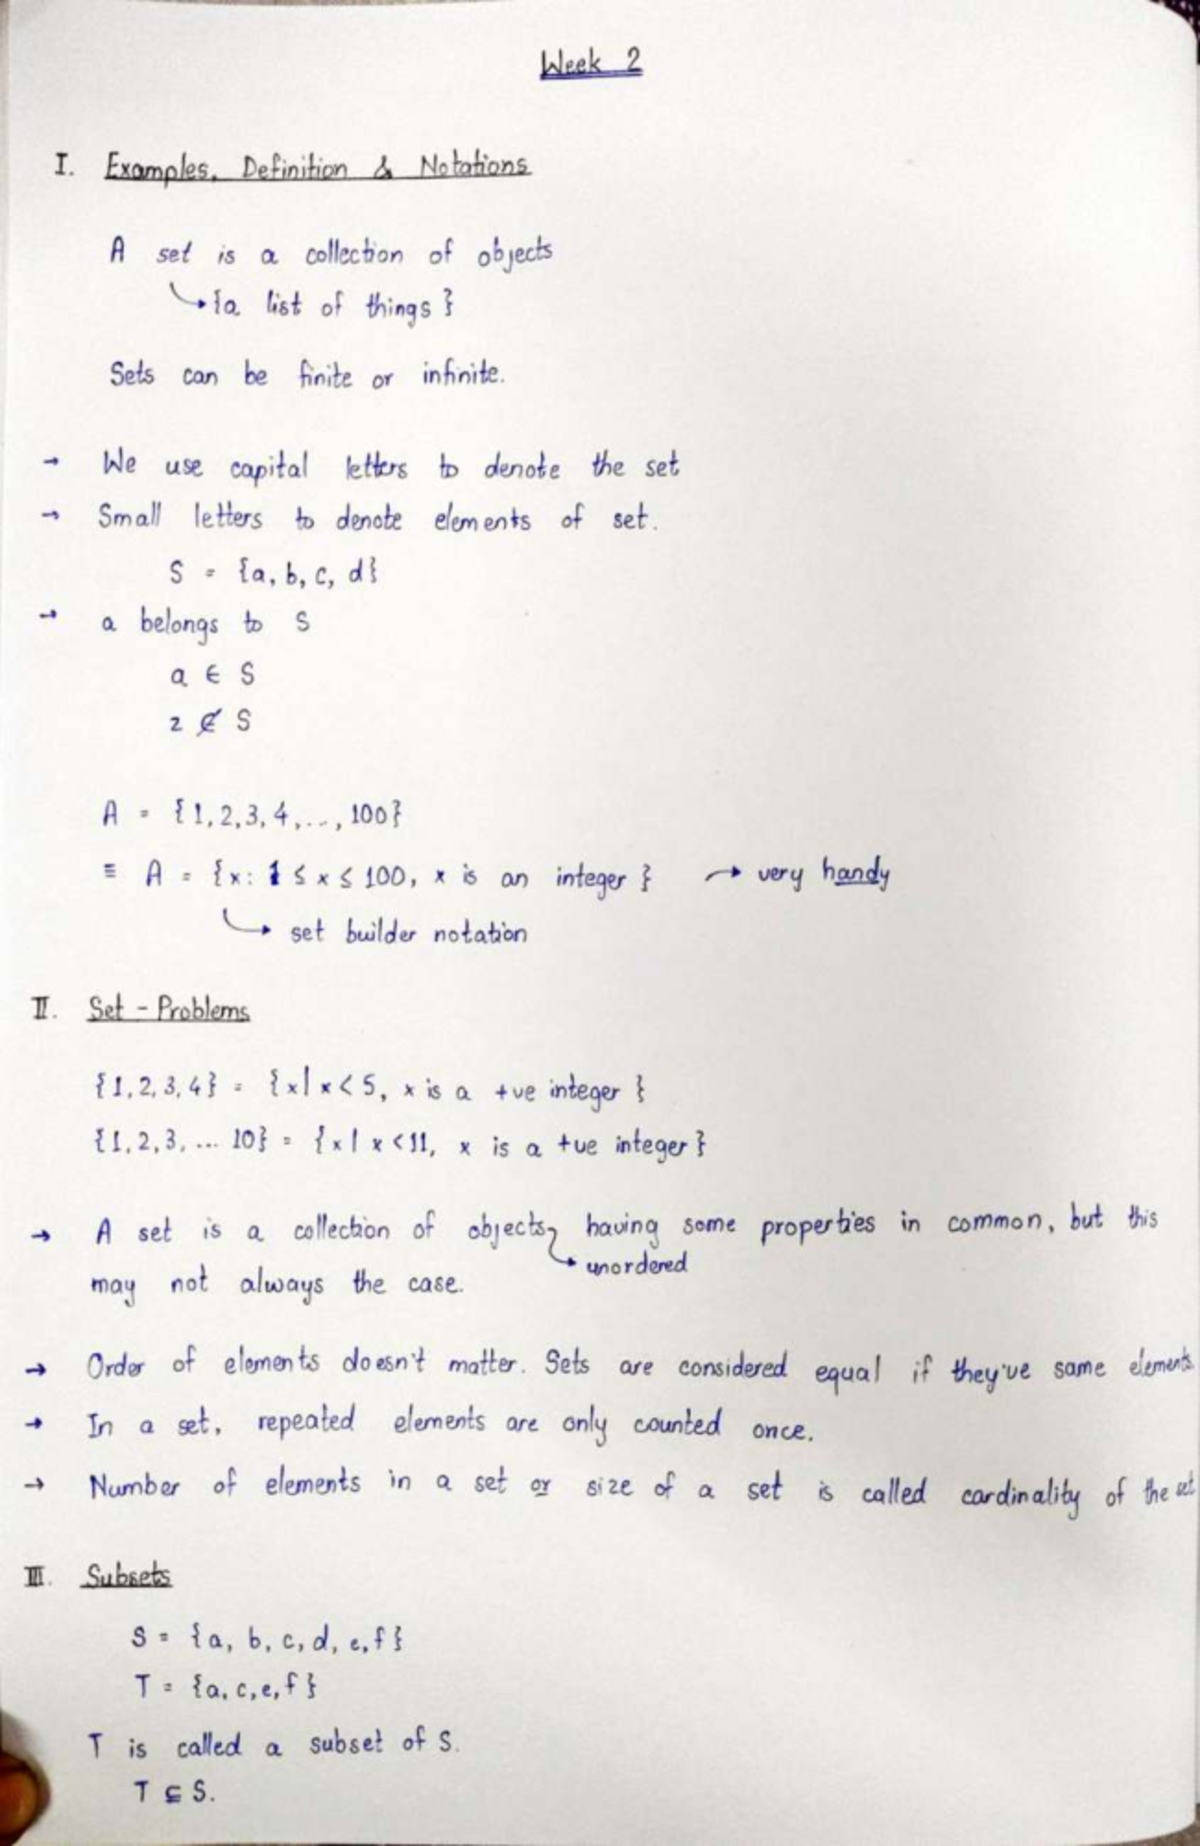 Week 2
I. Examples, Definition & Notations
A set is a collection of objects
↳ {a list of things}
Sets can be finite or infinite.
→ We use capital letters to denote the set
→ Small letters to denote elements of set.
S = {a, b, c, d}
→ a belongs to S
a ∈ S
2 ∉ S
A = {1, 2, 3, 4, ..., 100}
≡ A = {x: 1 ≤ x ≤ 100, x is an integer} → very handy
↳ set builder notation
II. Set - Problems
{1, 2, 3, 4} = {x | x < 5, x is a +ve integer}
{1, 2, 3, ... 10} = {x | x < 11, x is a +ve integer}
→ A set is a collection of objects, having some properties in common, but this
↳ unordered
may not always the case.
→ Order of elements doesn't matter. Sets are considered equal if they've same elements.
→ In a set, repeated elements are only counted once.
→ Number of elements in a set or size of a set is called cardinality of the set
III. Subsets
S = {a, b, c, d, e, f}
T = {a, c, e, f}
T is called a subset of S.
T ⊆ S.